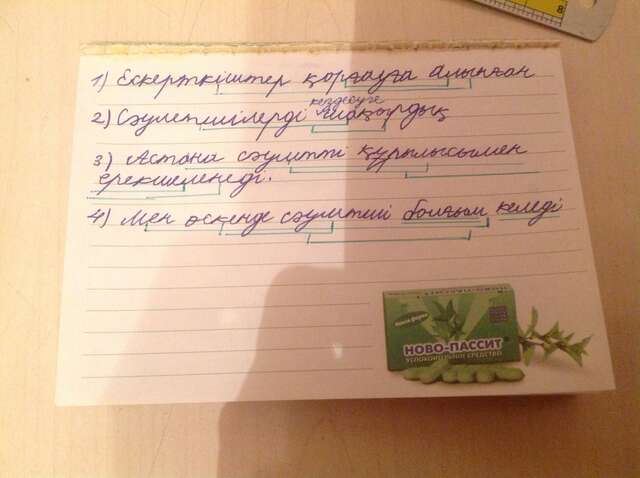 1) Ескерткіштер қорғауға алынған
кездесуге
2) Сәулетшілерді шақырдық
3) Астана сәулетті құрылысымен
ерекшеленеді.
4) Мен өскенде сәулетші болғым келеді
НОВО-ПАССИТ
УСПОКОИТЕЛЬНОЕ СРЕДСТВО